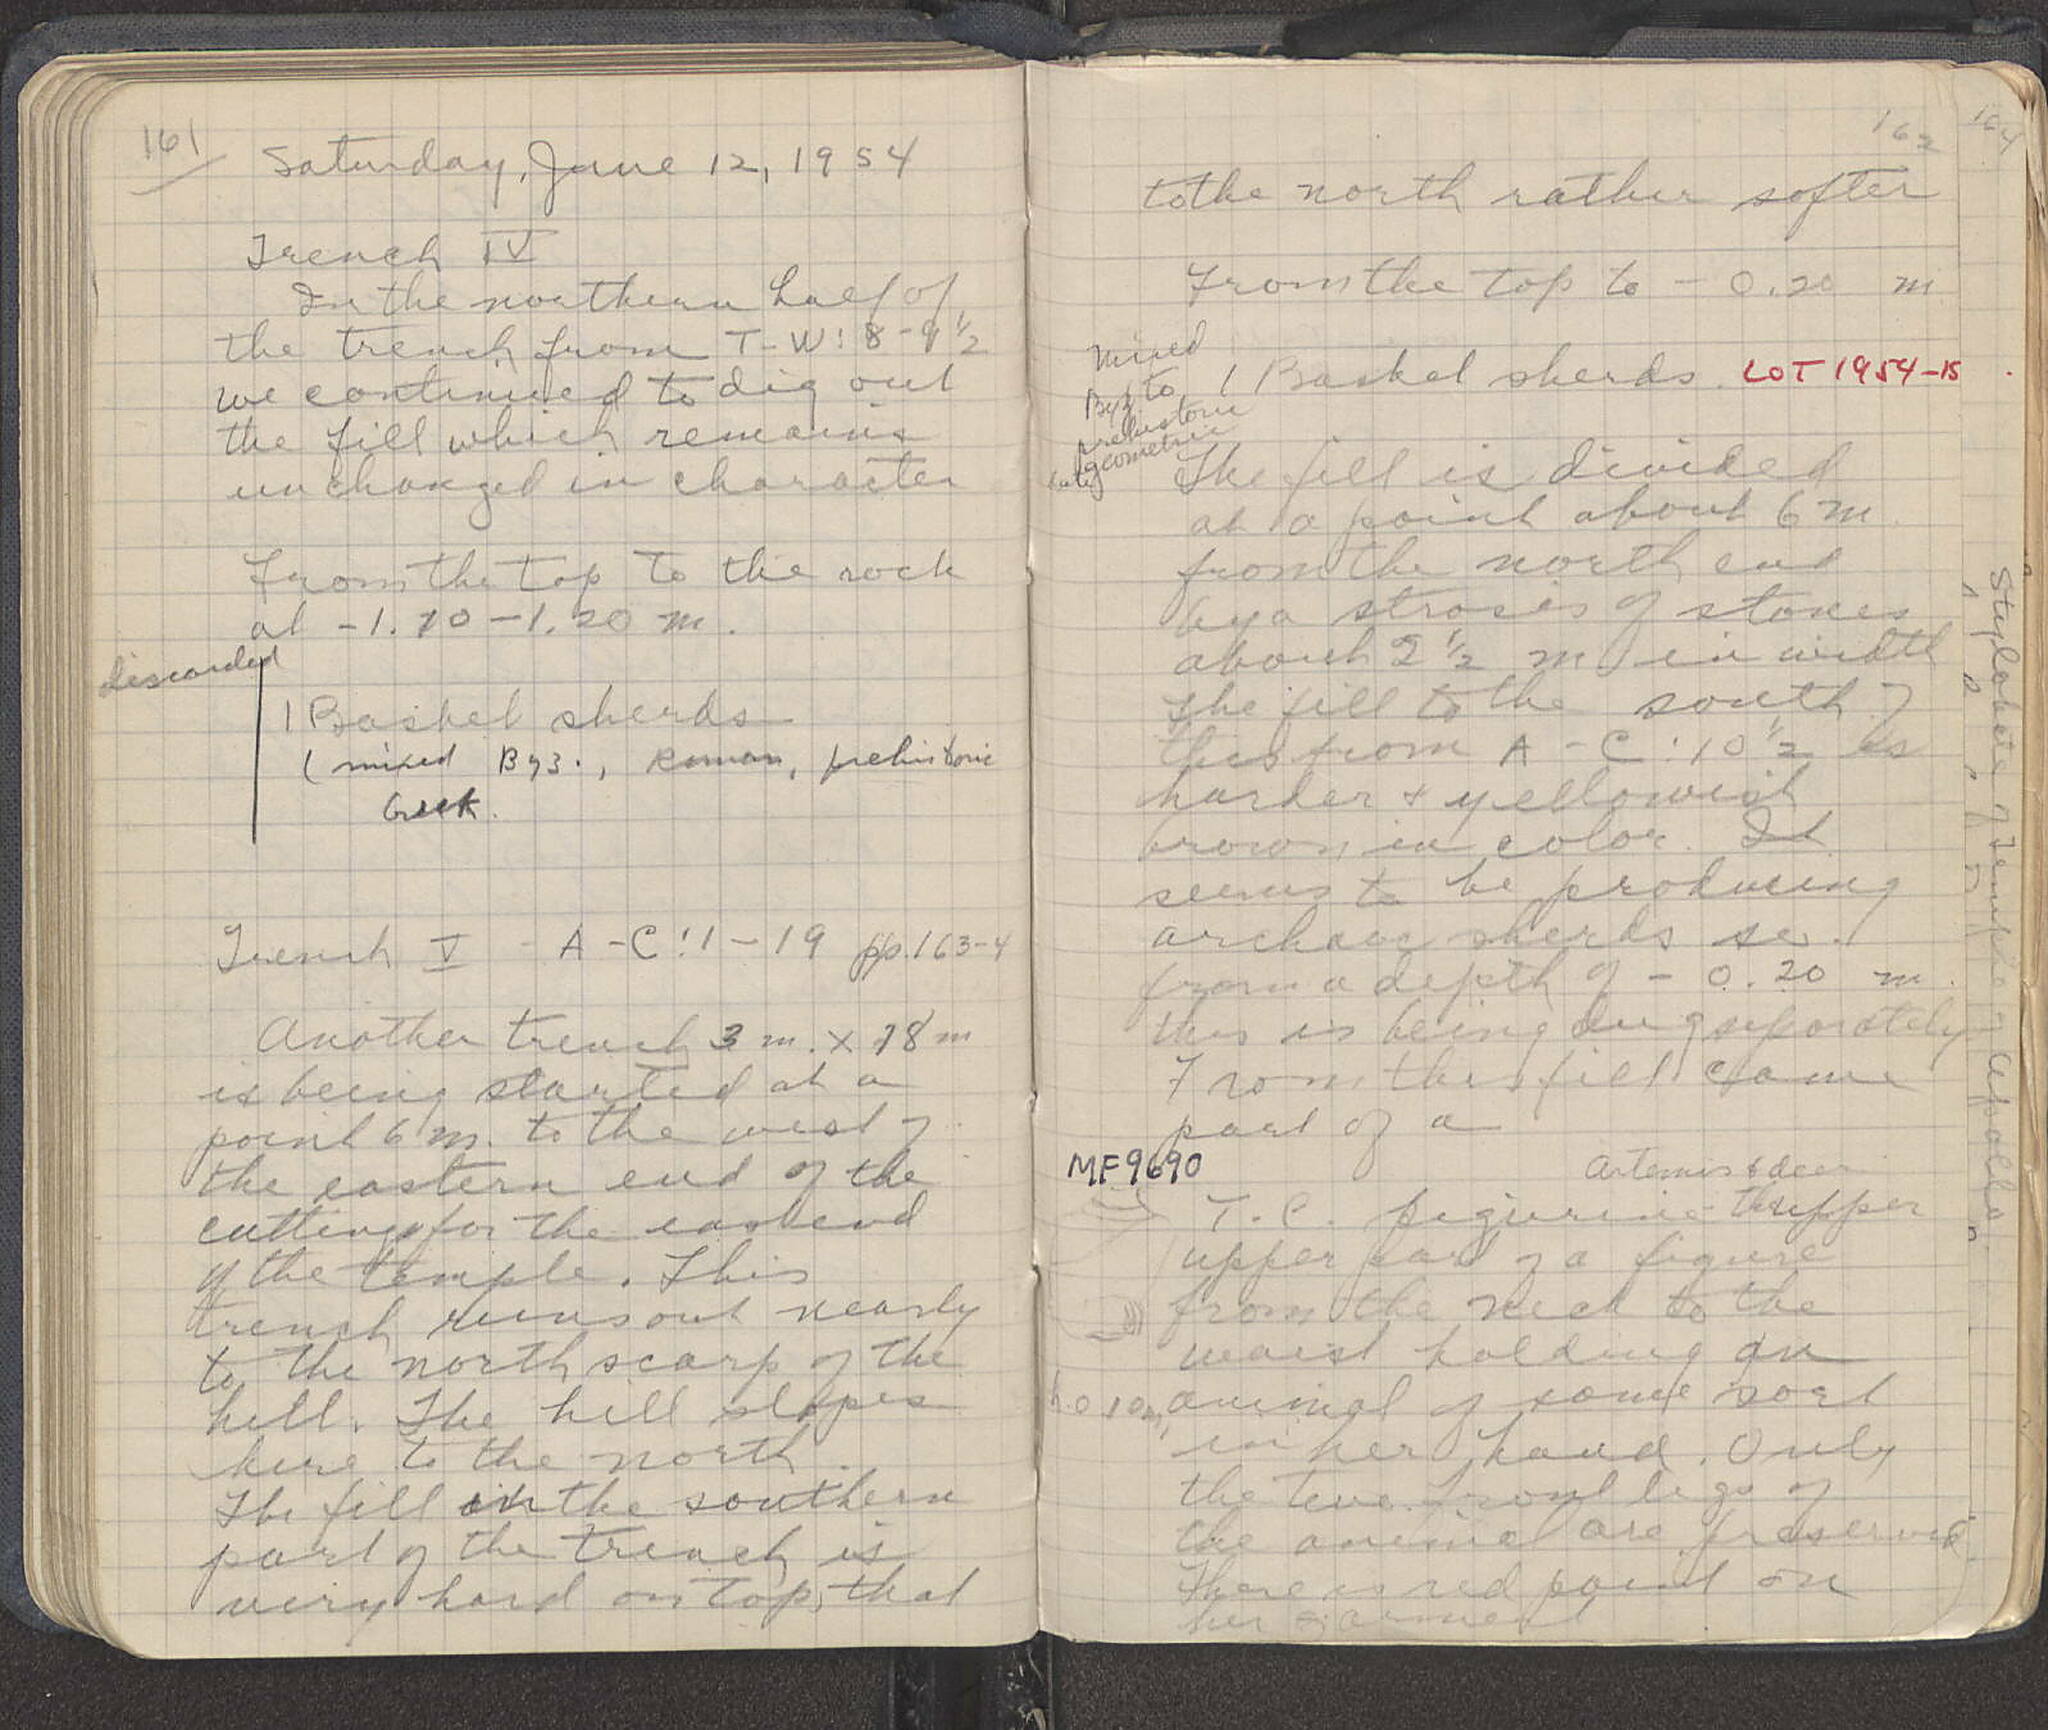 161
Saturday, June 12, 1954
Trench IV
In the northern half of
the trench from T-W:8-9½
we continued to dig out
the fill which remains
unchanged in character
From the top to the rock
at -1.10-1.20 m.
discarded
1 Basket sherds
(mixed Byz., Roman, prehistoric
Greek.
Trench V - A-C:1-19 pp.163-4
Another trench 3 m. x 18 m
is being started at a
point 6 m. to the west of
the eastern end of the
cuttings for the east end
of the temple. This
trench runs out nearly
to the north scarp of the
hill. The hill slopes
here to the north.
The fill in the southern
part of the trench is
very hard on top, that
162
to the north rather softer
From the top to -0.20 m
Mixed
Byz to
prehistoric
geometric
1 Basket sherds. LOT 1954-15
The fill is divided
at a point about 6 m.
from the north end
by a strosis of stones
about 2½ m in width
The fill to the south of
this from A-C:10½ is
harder + yellowish
brown in color. It
seems to be producing
archaic sherds so.
from a depth of -0.20 m.
this is being dug separately
From this fill came
part of a
MF9690
Artemis & deer
T.C. figurine the upper
upper part of a figure
from the neck to the
waist holding an
animal of some sort
in her hand. Only
the two front legs of
the animal are preserved
There is red paint on
her garment
164
Stylobate of Temple of Apollo